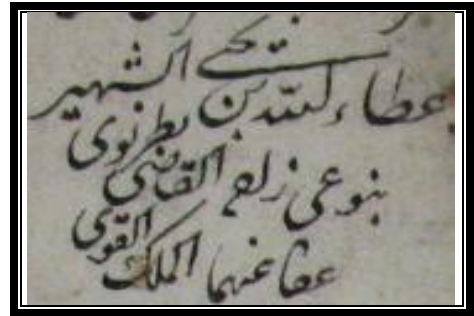 عطاء الله بن يحيى الشهير
بنوعى زاده القاضى بطرنوى
عفا عنهما الملك القوى